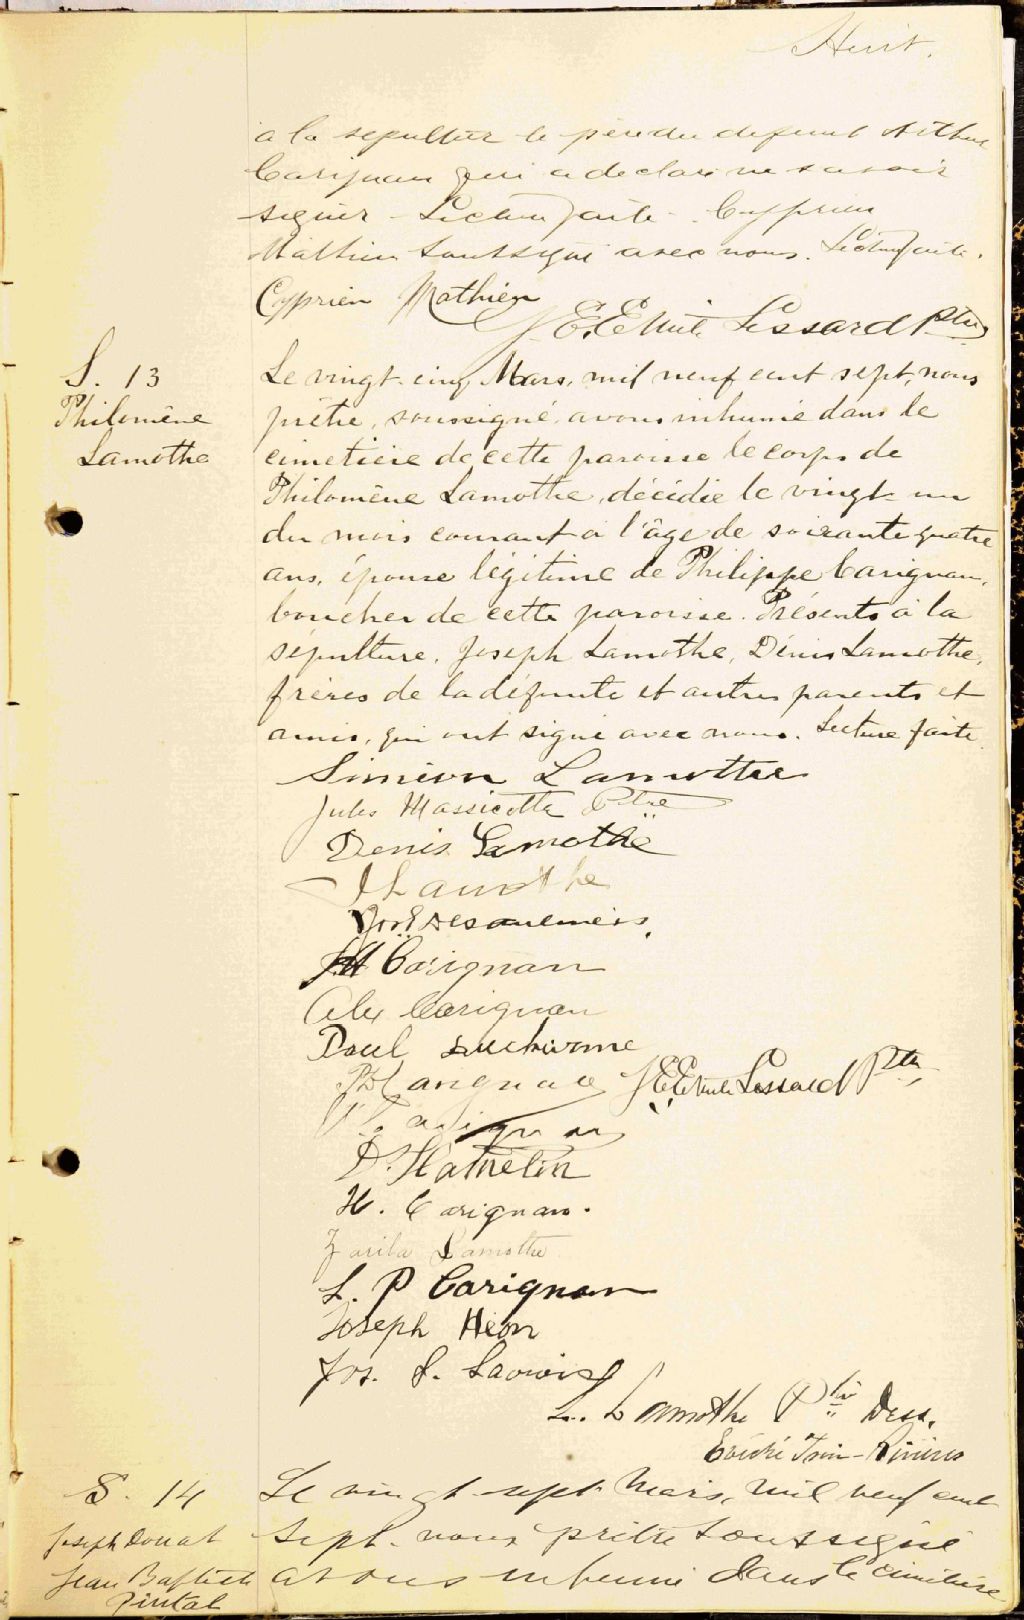 Huit.
a la sepulture le père du defunt Arthur
Carignan qui a declaré ne savoir
signer - Lecture faite - Cyprien
Mathieu soussigné avec nous. Lecture faite.
Cyprien Mathieu
J. E. Emile Lessard Ptre
S. 13
Philomène
Lamothe
Le vingt-cinq Mars, mil neuf cent sept, nous
prêtre, soussigné, avons inhumé dans le
cimetière de cette paroisse le corps de
Philomène Lamothe, décédée le vingt un
du mois courant à l'âge de soixante quatre
ans, épouse légitime de Philippe Carignan,
boucher de cette paroisse. Présents à la
sépulture, Joseph Lamothe, Dénis Lamothe,
frères de la défunte et autres parents et
amis, qui ont signé avec nous. Lecture faite.
Siméon Lamothe
Jules Massicotte Ptre
Denis Lamothe
J Lamothe
Carignan
Alex Carignan
Paul
Carignan J. E. Emile Lessard Ptre
Carignan
D. Hamelin
H. Carignan.
Lamothe
L. P Carignan
Joseph Héon
Jos.
L. Lamothe Ptre Dess.
Evêché Trois-Rivières
S. 14
Joseph Donat
Jean Baptiste
Pintal
Le vingt-sept Mars, mil neuf cent
sept, nous prêtre soussigné
avons inhumé dans le cimetière